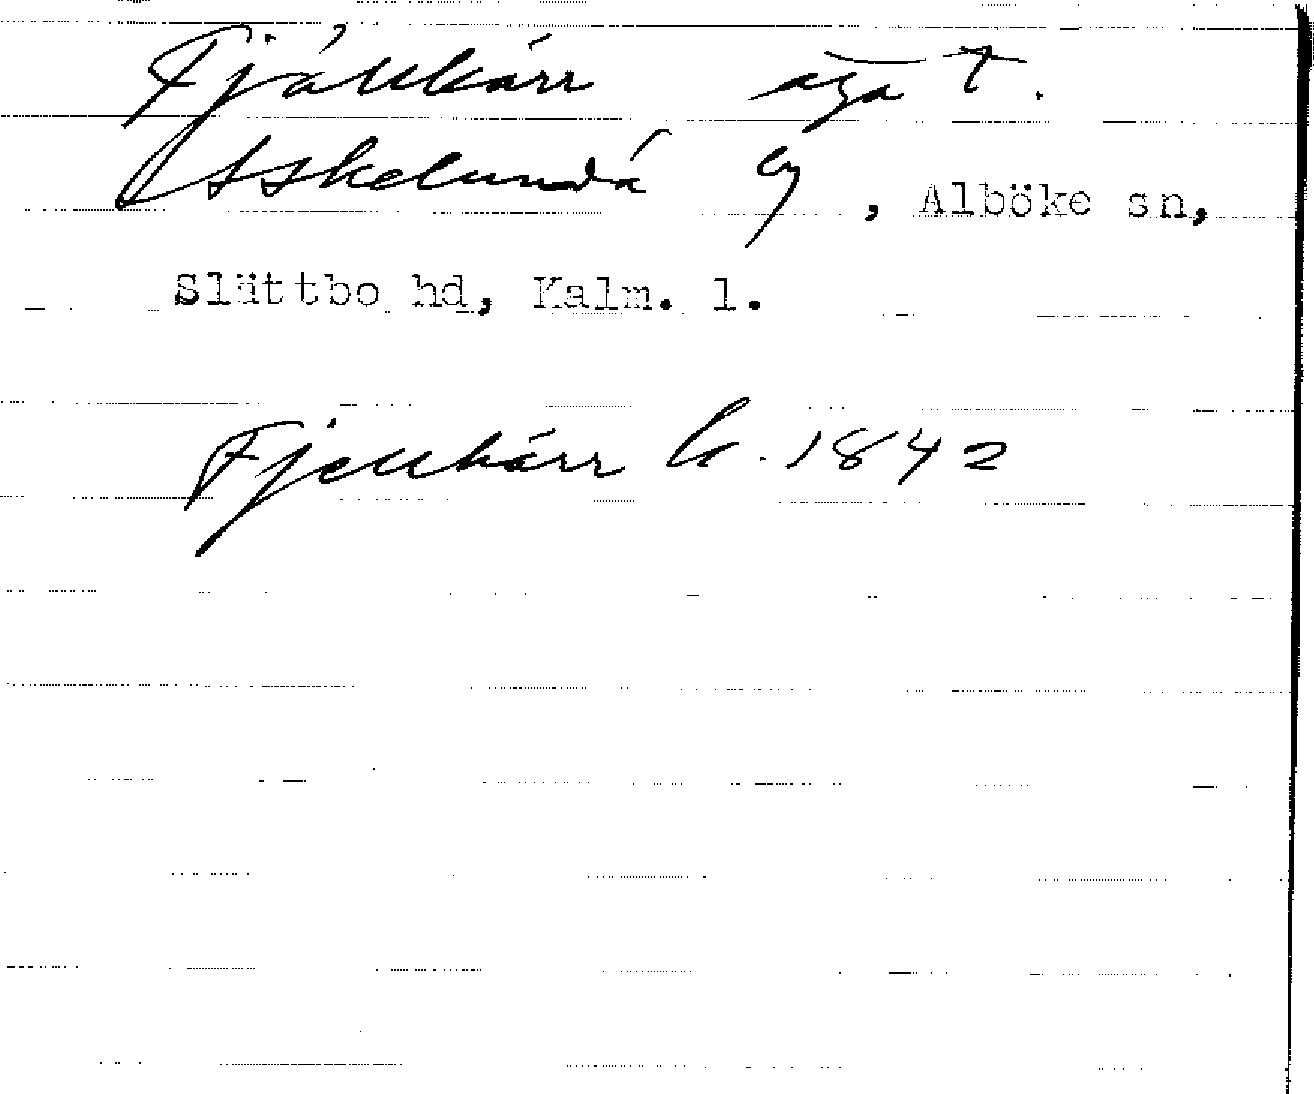 Fjällkärr äga t.
Askelunda by, Alböke sn,
Slättbo hd, Kalm. l.
Fjellkärr k. 1842